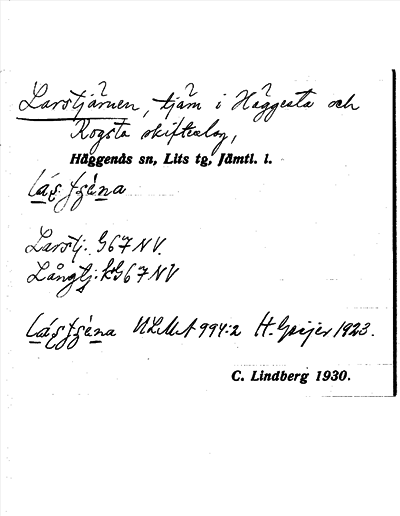 Larstjärnen, tjärn i Häggesta och
Rogsta skifteslag,
Häggenås sn, Lits tg, Jämtl. l.
Larstj. 67 NV.
Långtj. 67 NV
ULMA 994:2 H. Geijer 1923.
C. Lindberg 1930.